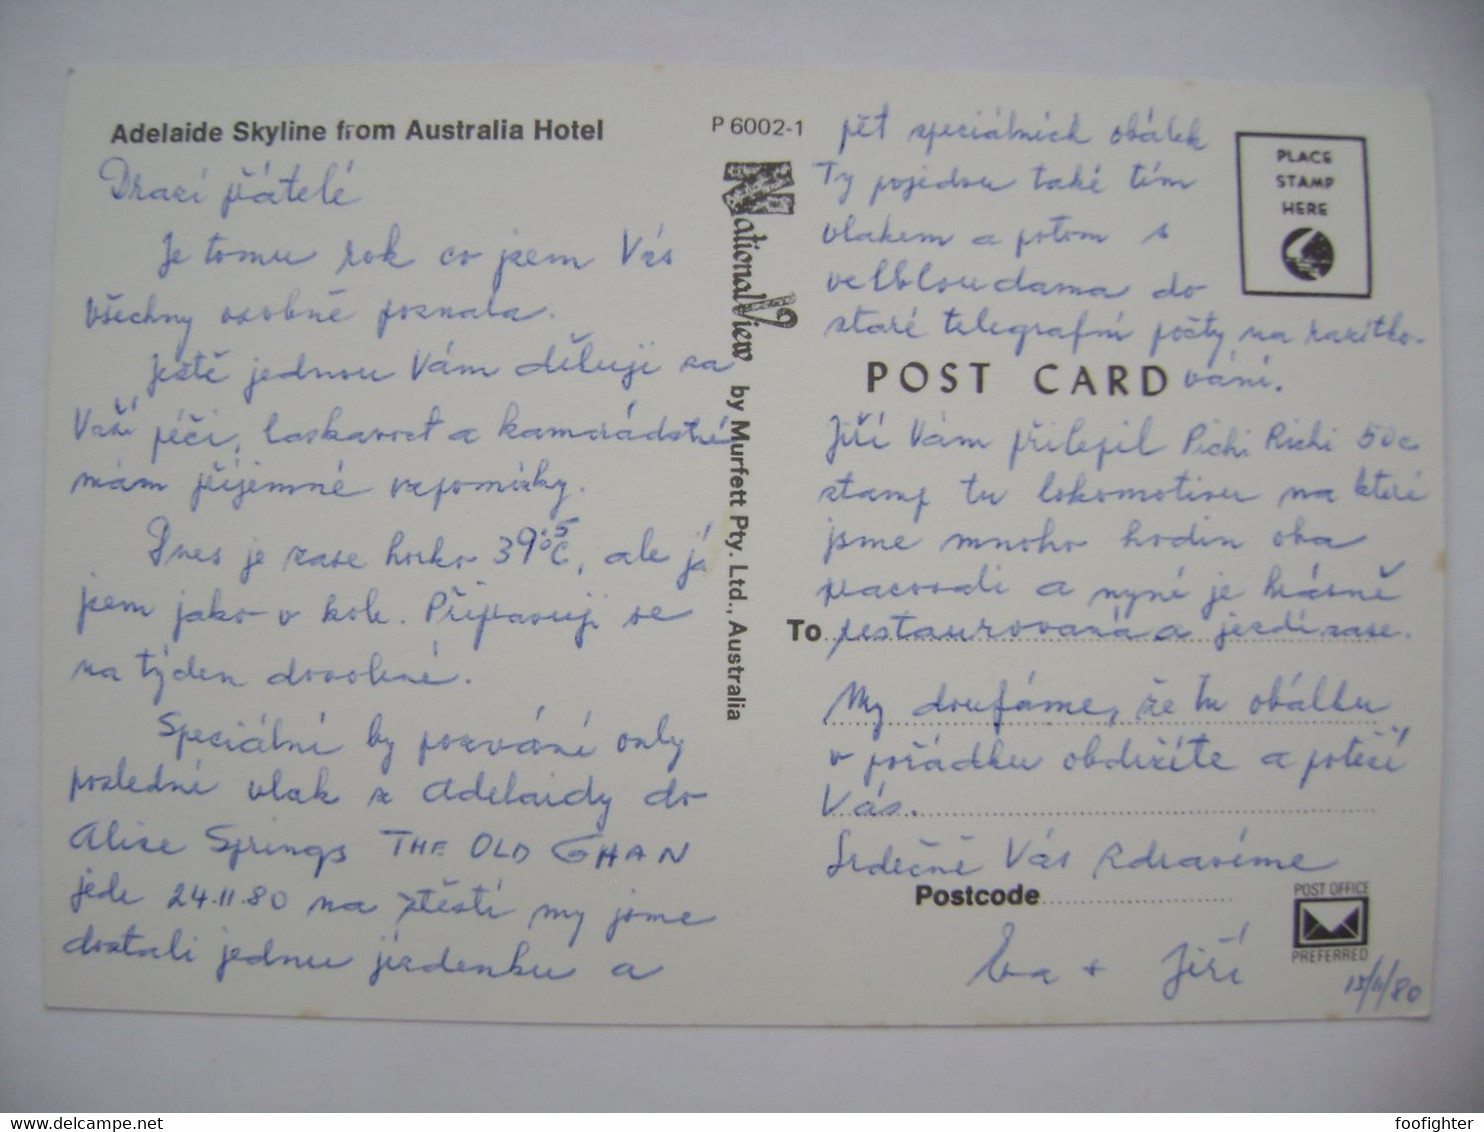 Adelaide Skyline from Australia Hotel
Drazí přátelé
Je tomu rok co jsem Vás
všechny osobně poznala.
Ještě jednou Vám děkuji za
Vaší péči, laskavost a kamarádství
mám příjemné vzpomínky.
Dnes je zase horko 39.5°C, ale já
jsem jako v kole. Připravuji se
na týden dovolené.
Speciální by pozvání only
poslední vlak z Adelaidy do
Alice Springs THE OLD GHAN
jede 24.11.80 na štěstí my jsme
dostali jednu jízdenku a
P 6002-1
National View by Murfett Pty. Ltd., Australia
pět speciálních obálek
Ty pojedou také tím
vlakem a potom s
velbloudama do
staré telegrafní pošty na razítko-
vání.
PLACE
STAMP
HERE
POST CARD
Jiří Vám přilepil Pichi Richi 50c
stamp tu lokomotivu na které
jsme mnoho hodin oba
pracovali a nyní je krásně
To restaurovaná a jezdí zase.
My doufáme, že tu obálku
v pořádku obdržíte a potěší
Vás.
Srdečně Vás zdravíme
Postcode
Eva + Jiří
POST OFFICE
PREFERRED
15/11/80
www.delcampe.net
foofighter